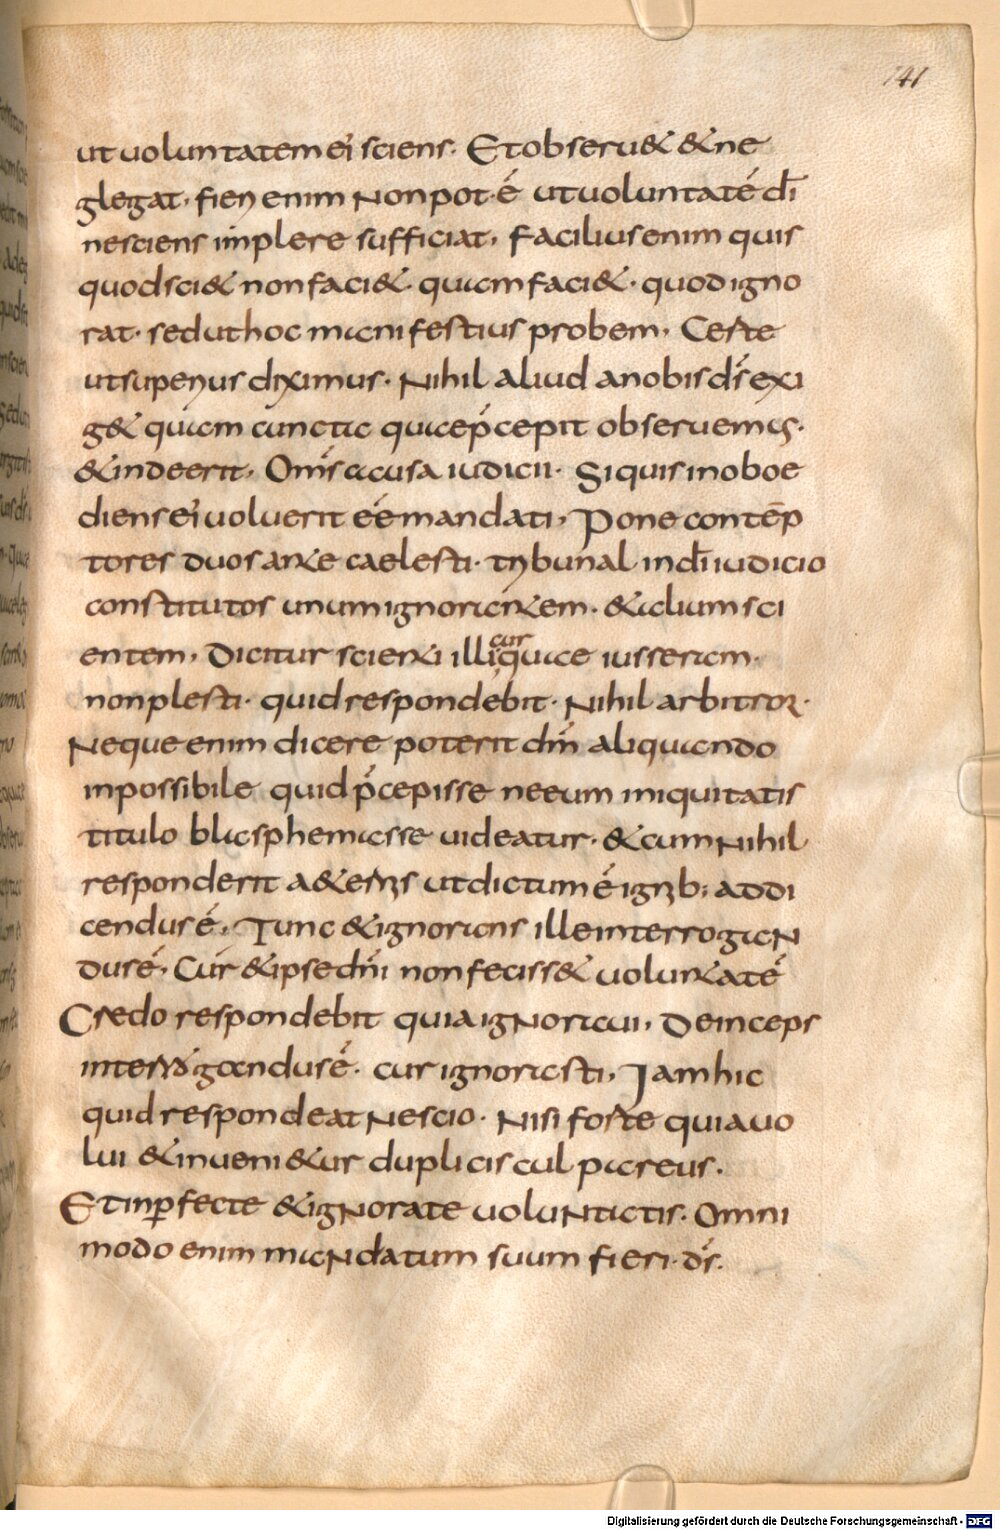 141
ut uoluntatem ei sciens. Et obseru& & ne
glegat. fieri enim non pot. é ut uoluntaté dī
nesciens implere sufficiat. Facilius enim quis
quod sci& non faci&. quam faci&. quod igno
rat. sed ut hoc manifestius probem. Certe
ut superius diximus. Nihil aliud a nobis d̄s exi
g& quam cuncta quae p̄cepit obseruemus.
& inde erit. Om̄s causa iudicii. Si quis inoboe
diens ei uoluerit eé mandati. Pone contēp
tores duos ante caelesti. tribunal in dī iudicio
constitutos unum ignorantem. & alium sci
entem. Dicitur scienti illi cur quae iusseram.
non plesti. quid respondebit. Nihil arbitror.
Neque enim dicere poterit dn̄m aliquando
inpossibile quid p̄cepisse ne eum iniquitatis
titulo blasphemasse uideatur. & cum Nihil
responderit a&ernis ut dictum é ignib; addi
cendus é. Tunc & ignorans ille interrogan
dus é. Cur & ipse dn̄i non feciss& uoluntaté
Credo respondebit quia ignoraui. Deinceps
interrogandus é. cur ignorasti. Iam hic
quid respondeat Nescio. Nisi forte quia uo
lui & inueni&ur duplicis culpae reus.
Et inꝑfecte & ignorate uoluntatis. Omni
modo enim mandatum suum fieri. d̄s.
Digitalisierung gefördert durch die Deutsche Forschungsgemeinschaft - DFG